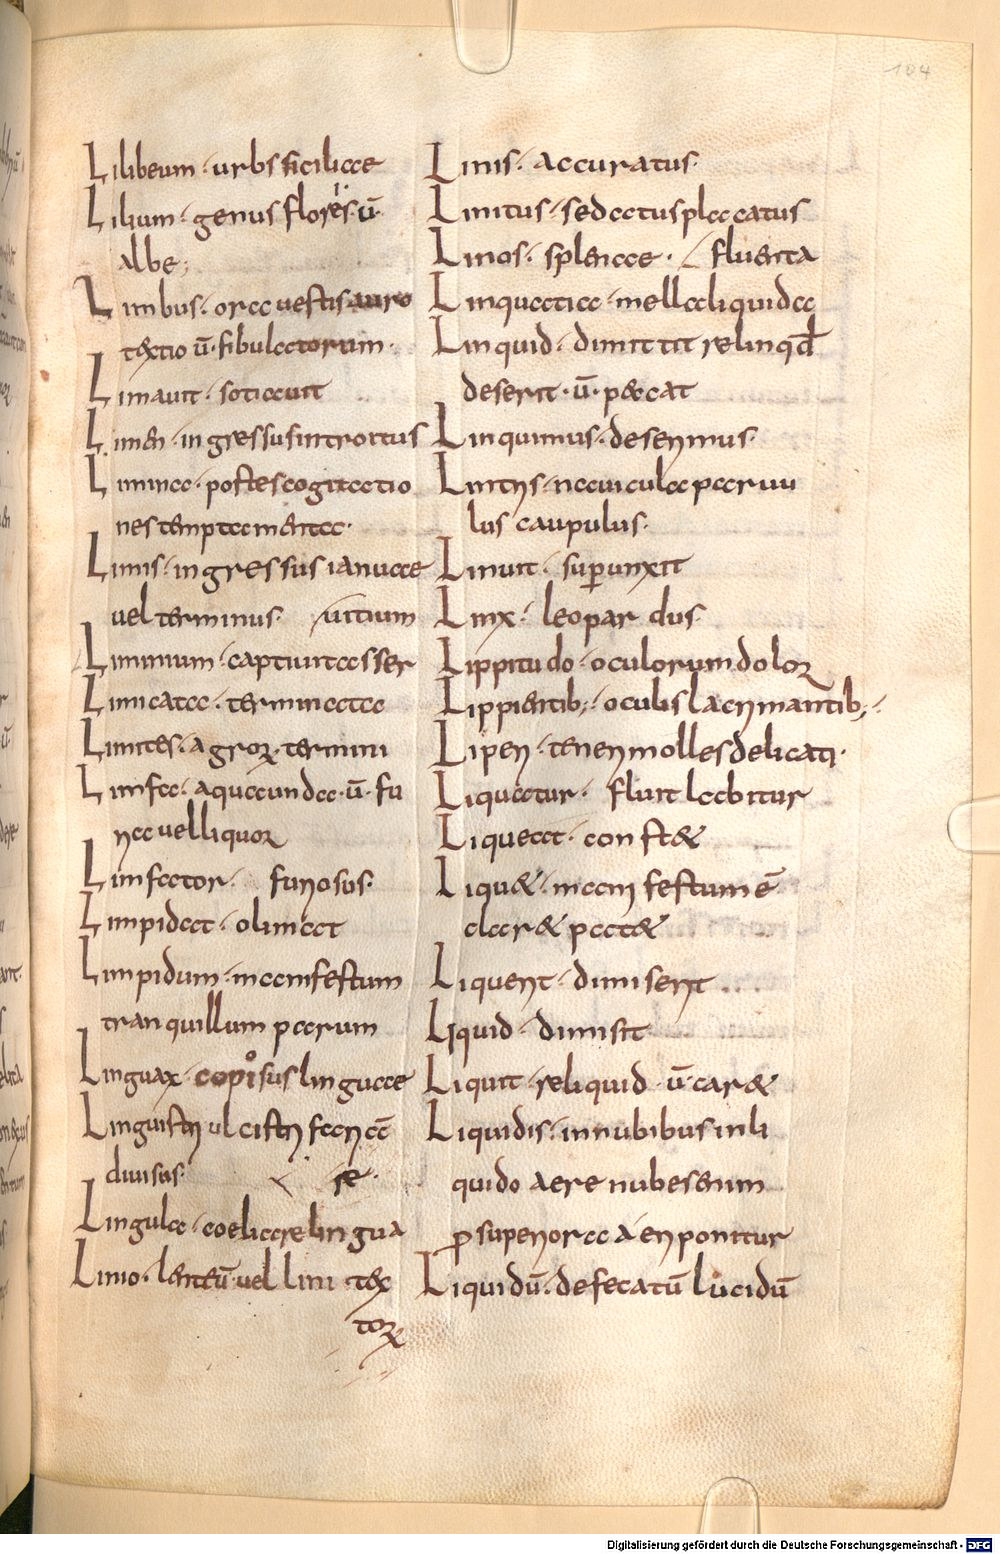 104
Lilibeum · urbs siciliae
Lilium · genus flores · ū ·
albe ;
Limbus · ora uestis auro
textio ū · fibulatorum ·
Limauit · sotiauit
Limen · ingressus introitus
Limina · postes cogitatio
nes temptamenta ·
Limis · ingressus ianuae
uel terminus · / uitium
Liminium · captiuitas ser
Limcata · terminata
Limites · agroꝝ · termini
Limfa · aquaunda · ū · fu
ria uel liquoꝝ
Limfator · furiosus ·
Limpidat · olimat
Limpidum · manifestum
tranquillum parum
Linguax · copiosus linguae
Linguistri ul cistri fariā
diuisus · re ·
Lingula · coeliare lingua
Linio · lenteū · uel lini tex
toꝝ
Linis · accuratus ·
Linitus · sedatus placatus
Linos · splenae · / fluenta
Linquatia · mella liquida
Linquid · dimittit relinqđ
deserit · ū · peccat
Linquimus · deserimus ·
Lintris · nauicula paruu
lus caupulus ·
Linuit · suꝑunxit
Linx · leopardus ·
Lippitudo · oculorum doloꝝ
Lippientib; · oculis lacrimantib; ·
Liperi · teneri molles delicati ·
Liquatur · fluit labitur
Liqueat · constet
Liquet · manifestum ē
claret patet
Liquerit · dimiserit
Liquid · dimisit
Liquit · reliquid · ū · caret
Liquidis · in nubibus in li
quido aere nubes enim
ꝑ superiora aeri ponitur
Liquidū · defecatū lucidū
Digitalisierung gefördert durch die Deutsche Forschungsgemeinschaft - DFG